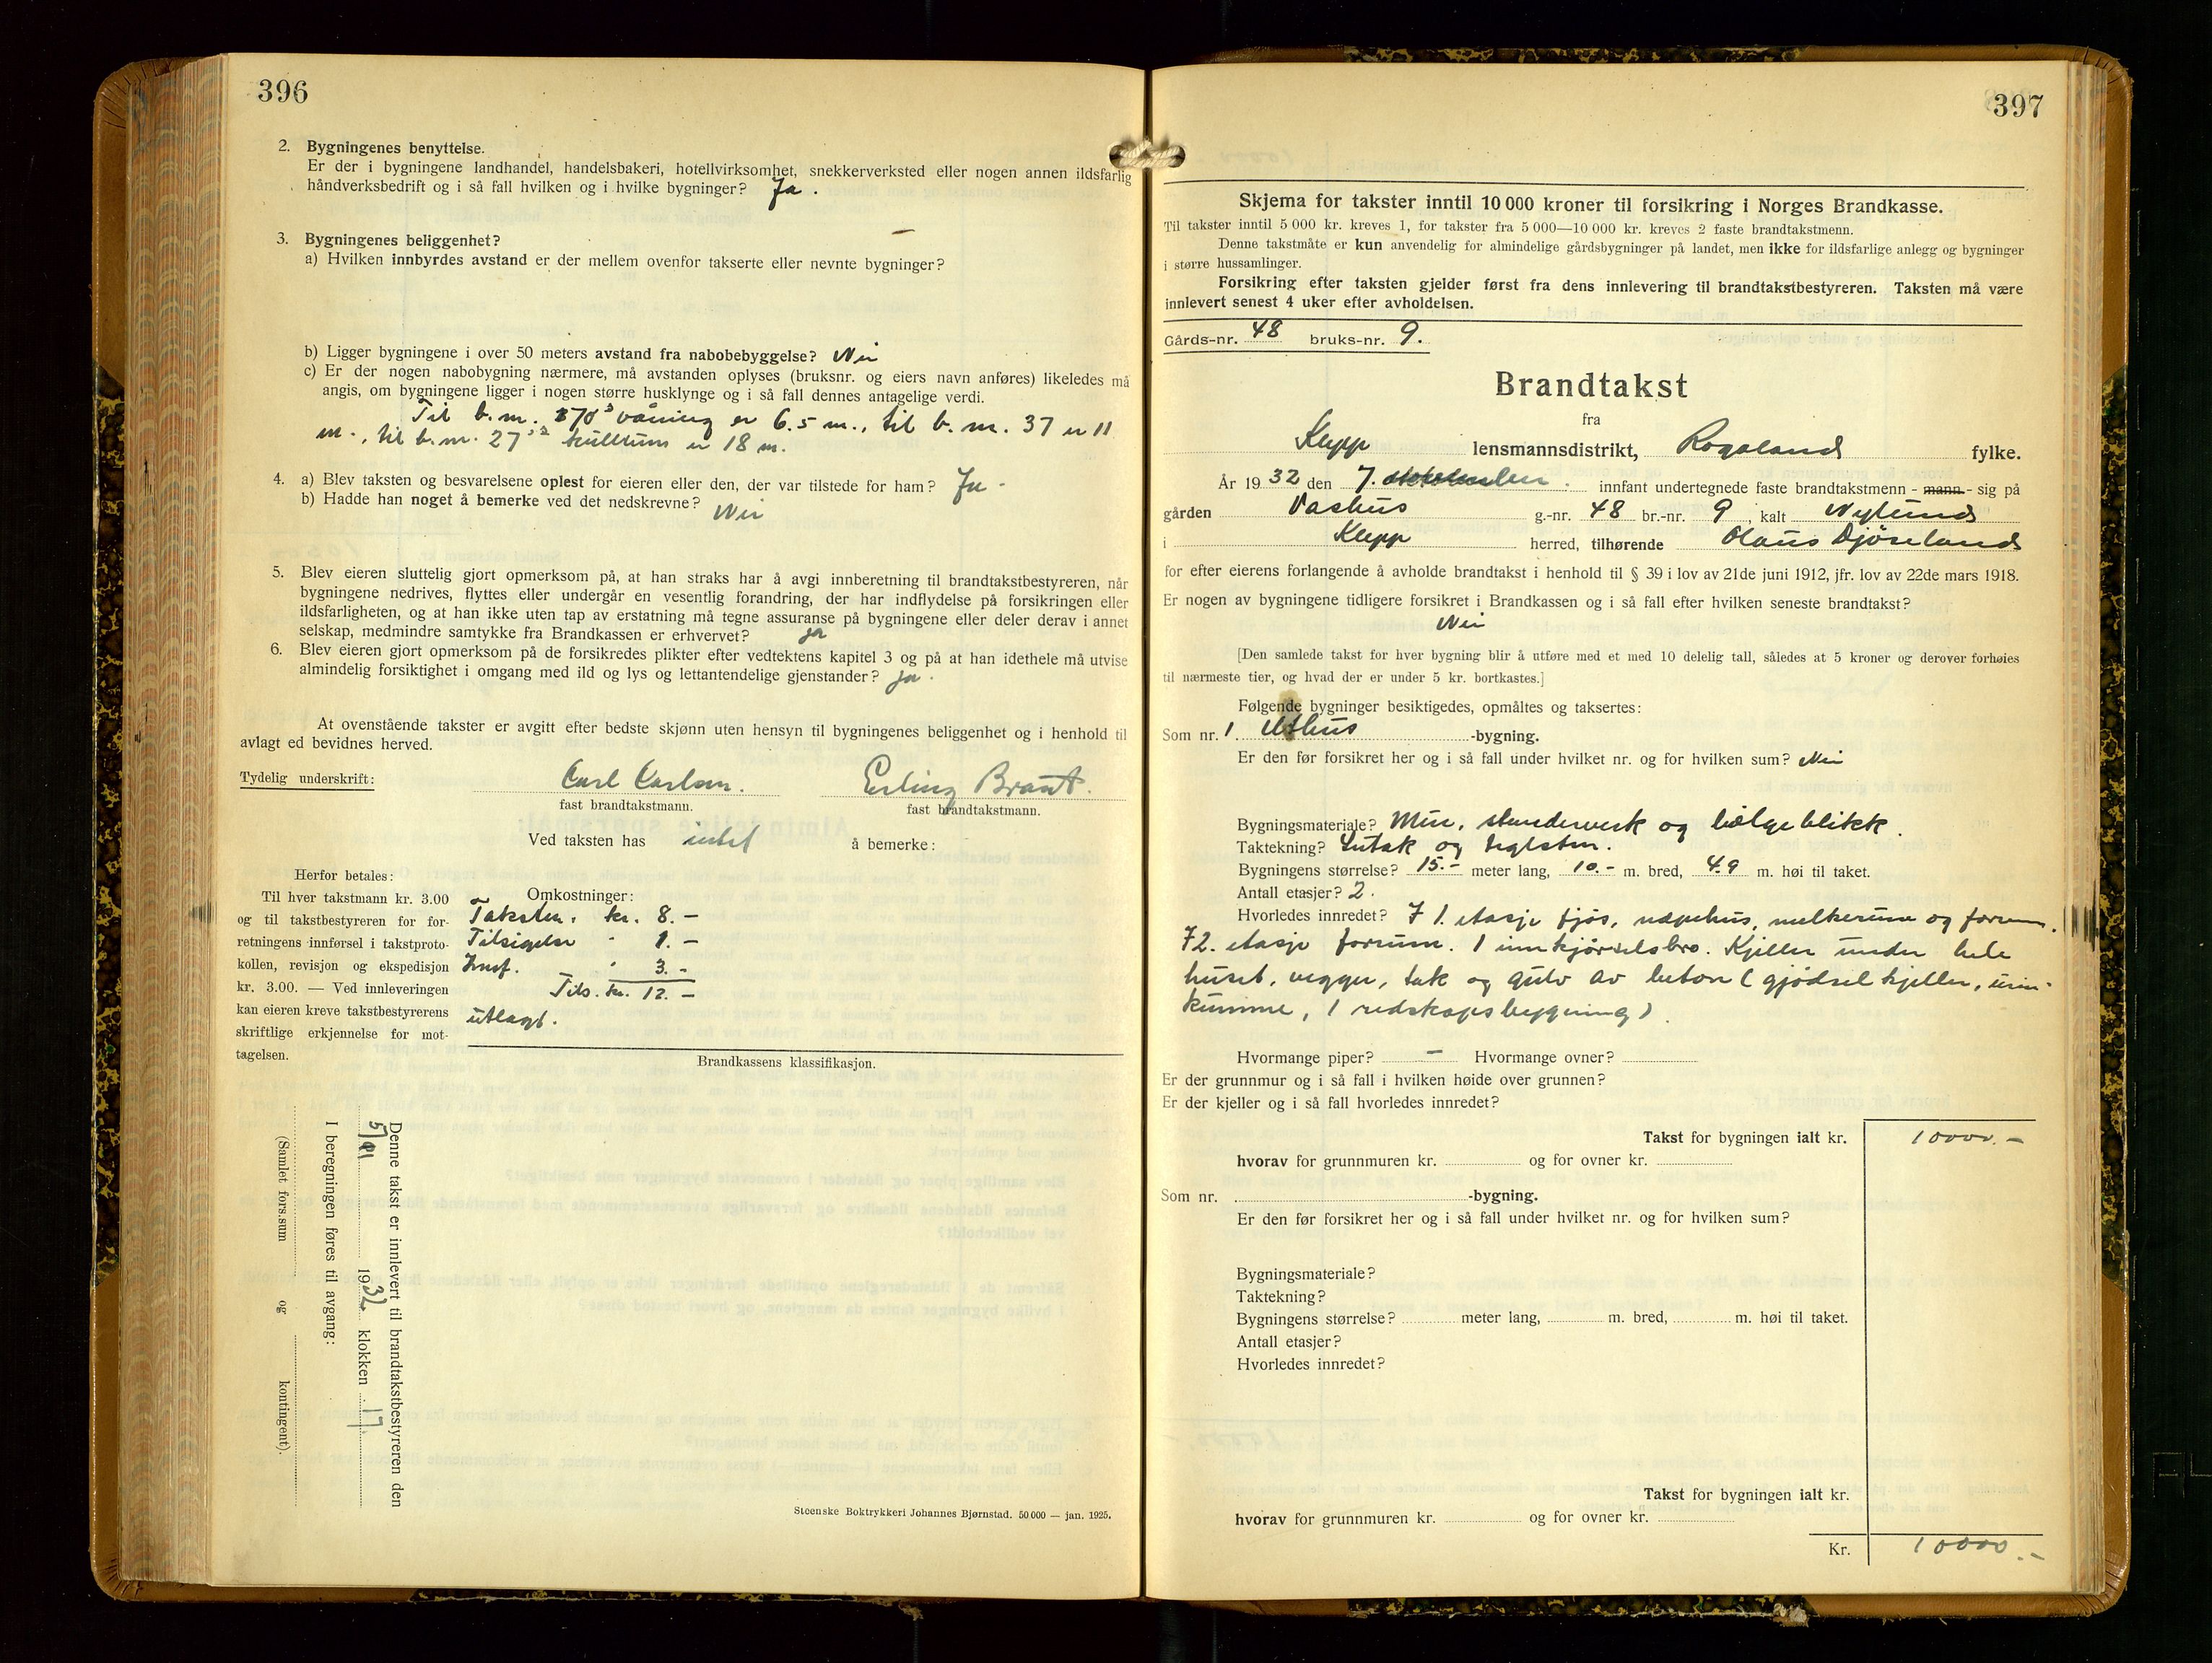 396
2. Bygningenes benyttelse.
Er der i bygningene landhandel, handelsbakeri, hotellvirksomhet, snekkerverksted eller nogen annen ildsfarlig
håndverksbedrift og i så fall hvilken og i hvilke bygninger? Ja.
3. Bygningenes beliggenhet?
a) Hvilken innbyrdes avstand er der mellem ovenfor takserte eller nevnte bygninger? —
b) Ligger bygningene i over 50 meters avstand fra nabobebyggelse? Nei
c) Er der nogen nabobygning nærmere, må avstanden oplyses (bruksnr. og eiers navn anføres) likeledes må
angis, om bygningene ligger i nogen større husklynge og i så fall dennes antagelige verdi.
Til b.nr. våning er 6.5 m., til b.nr. 37 er 11
m., til b.nr. 27 er 18 m.
4. a) Blev taksten og besvarelsene oplest for eieren eller den, der var tilstede for ham? Ja.
b) Hadde han noget å bemerke ved det nedskrevne? Nei
5. Blev eieren sluttelig gjort opmerksom på, at han straks har å avgi innberetning til brandtakstbestyreren, når
bygningene nedrives, flyttes eller undergår en vesentlig forandring, der har indflydelse på forsikringen eller
ildsfarligheten, og at han ikke uten tap av erstatning må tegne assuranse på bygningene eller deler derav i annet
selskap, medmindre samtykke fra Brandkassen er erhvervet? ja
6. Blev eieren gjort opmerksom på de forsikredes plikter efter vedtektens kapitel 3 og på at han idethele må utvise
almindelig forsiktighet i omgang med ild og lys og lettantendelige gjenstander? ja.
At ovenstående takster er avgitt efter bedste skjønn uten hensyn til bygningenes beliggenhet og i henhold til
avlagt ed bevidnes herved.
Tydelig underskrift: Carl Carlsen. Erling Braut.
fast brandtakstmann. fast brandtakstmann.
Ved taksten has intet å bemerke:
Herfor betales:
Til hver takstmann kr. 3.00
og til takstbestyreren for for-
retningens innførsel i takstproto-
kollen, revisjon og ekspedisjon
kr. 3.00. — Ved innleveringen
kan eieren kreve takstbestyrerens
skriftlige erkjennelse for mot-
tagelsen.
Omkostninger:
Taksten. kr. 8.—
Tilsigelse " 1.—
Innf. " 3.—
Tils. kr. 12.—
utlagt.
Brandkassens klassifikasjon.
Denne takst er innlevert til brandtakstbestyreren den
5/11 1932 klokken 17
I beregningen føres til avgang:
(Samlet fors.sum og kontingent).
Steenske Boktrykkeri Johannes Bjørnstad. 50 000 — jan. 1925.
397
Skjema for takster inntil 10 000 kroner til forsikring i Norges Brandkasse.
Til takster inntil 5 000 kr. kreves 1, for takster fra 5 000—10 000 kr. kreves 2 faste brandtakstmenn.
Denne takstmåte er kun anvendelig for almindelige gårdsbygninger på landet, men ikke for ildsfarlige anlegg og bygninger
i større hussamlinger.
Forsikring efter taksten gjelder først fra dens innlevering til brandtakstbestyreren. Taksten må være
innlevert senest 4 uker efter avholdelsen.
Gårds-nr. 48 bruks-nr. 9.
Brandtakst
fra
Klepp lensmannsdistrikt, Rogaland fylke.
År 1932 den 7. innfant undertegnede faste brandtakstmenn - mann - sig på
gården Vashus g.-nr. 48 br.-nr. 9 kalt Nylund
i Klepp herred, tilhørende Olaus Djøseland
for efter eierens forlangende å avholde brandtakst i henhold til § 39 i lov av 21de juni 1912, jfr. lov av 22de mars 1918.
Er nogen av bygningene tidligere forsikret i Brandkassen og i så fall efter hvilken seneste brandtakst?
Nei
[Den samlede takst for hver bygning blir å utføre med et med 10 delelig tall, således at 5 kroner og derover forhøies
til nærmeste tier, og hvad der er under 5 kr. bortkastes.]
Følgende bygninger besiktigedes, opmåltes og taksertes:
Som nr. 1. Uthus -bygning.
Er den før forsikret her og i så fall under hvilket nr. og for hvilken sum? Nei
Bygningsmateriale? Mur, standerverk og bølgeblikk.
Taktekning? Sutak og teglsten.
Bygningens størrelse? 15.— meter lang, 10.— m. bred, 4.9 m. høi til taket.
Antall etasjer? 2.
Hvorledes innredet? I 1. etasje fjøs, næpehus, melkerum og forrum.
I 2. etasje forrum. 1 innkjørselsbro. Kjeller under hele
huset, vegger, tak og gulv av beton (gjødselkjeller, urin-
kumme, 1 redskapsbygning).
Hvormange piper? — Hvormange ovner?
Er der grunnmur og i så fall i hvilken høide over grunnen?
Er der kjeller og i så fall hvorledes innredet?
Takst for bygningen ialt kr. 10000.—
hvorav for grunnmuren kr. og for ovner kr.
Som nr. -bygning.
Er den før forsikret her og i så fall under hvilket nr. og for hvilken sum?
Bygningsmateriale?
Taktekning?
Bygningens størrelse? meter lang, m. bred, m. høi til taket.
Antall etasjer?
Hvorledes innredet?
Takst for bygningen ialt kr.
hvorav for grunnmuren kr. og for ovner kr.
Kr. 10000.—